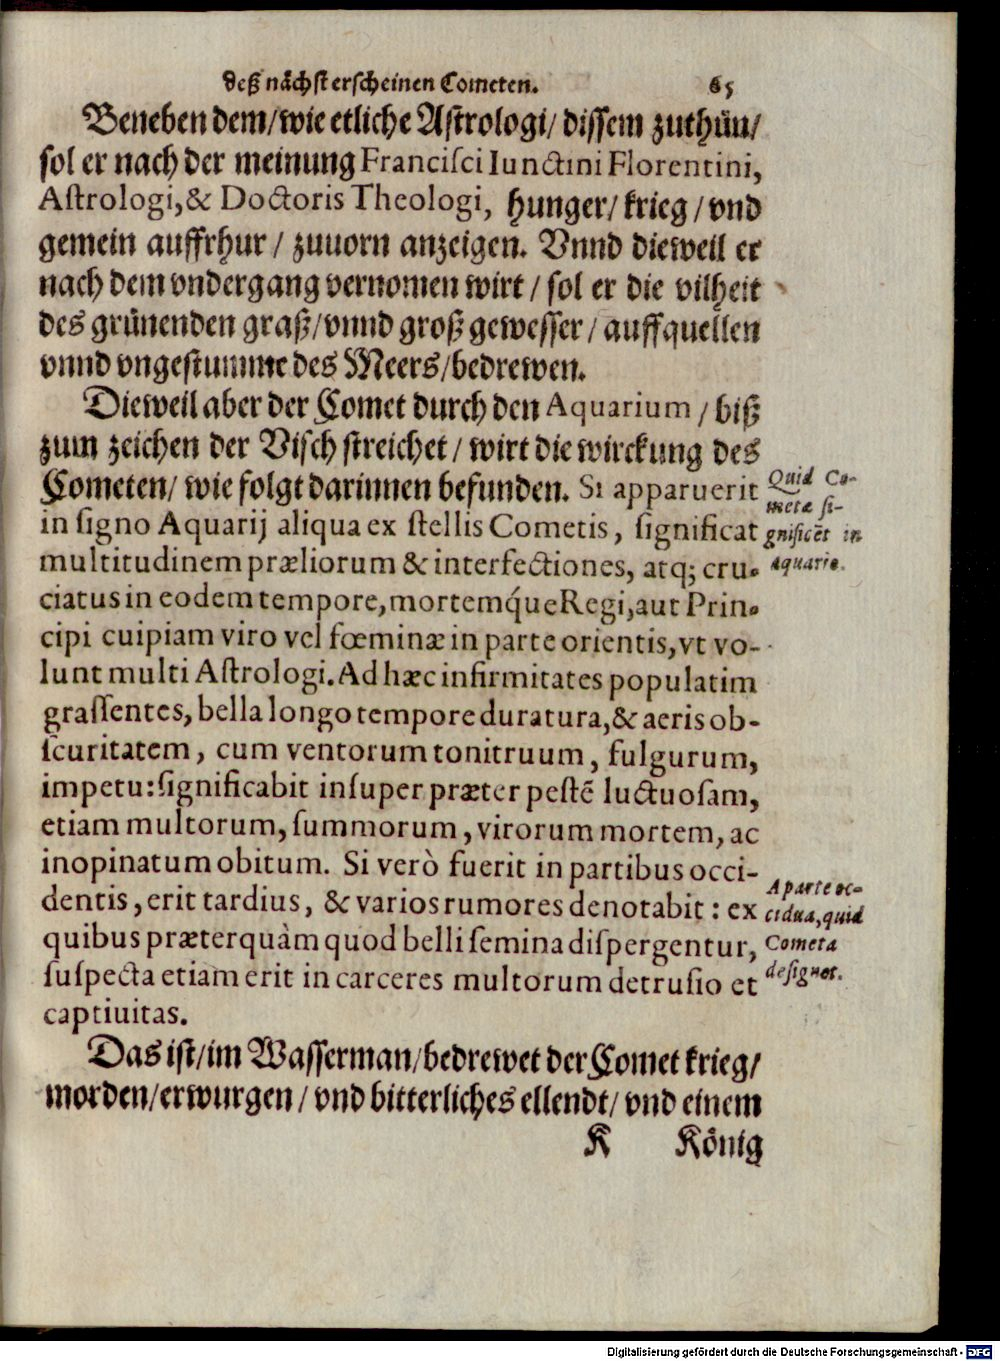 deß nächst erscheinen Cometen. 65
Beneben dem/wie etliche Astrologi/ dissem zuthün/
sol er nach der meinung Francisci Iunctini Florentini,
Astrologi,& Doctoris Theologi, hunger/ krieg / vnd
gemein auffrhur / zuuorn anzeigen. Vnnd dieweil er
nach dem vndergang vernomen wirt / sol er die vilheit
des grünenden graß/vnnd groß gewesser / auffquellen
vnnd vngestumme des Meers/bedrewen.
Dieweil aber der Comet durch den Aquarium / biß
zum zeichen der Visch streichet / wirt die wirckung des
Cometen/ wie folgt darinnen befunden. Si apparuerit
in signo Aquarij aliqua ex stellis Cometis, significat
multitudinem præliorum & interfectiones, atq; cru-
ciatus in eodem tempore,mortemq́ue Regi,aut Prin-
cipi cuipiam viro vel fœminæ in parte orientis,vt vo-
lunt multi Astrologi. Ad hæc infirmitates populatim
grassentes, bella longo tempore duratura,& aeris ob-
scuritatem, cum ventorum tonitruum, fulgurum,
impetu: significabit insuper præter pestē luctuosam,
etiam multorum, summorum, virorum mortem, ac
inopinatum obitum. Si verò fuerit in partibus occi-
dentis, erit tardius, & varios rumores denotabit : ex
quibus præterquàm quod belli semina dispergentur,
suspecta etiam erit in carceres multorum detrusio et
captiuitas.
Das ist/im Wasserman/bedrewet der Comet krieg/
morden/erwurgen / vnd bitterliches ellendt/ vnd einem
K König
Quid Co-
metæ si-
gnificēt in
aquario.
A parte oc-
cidua,quid
Cometa
designet.
Digitalisierung gefördert durch die Deutsche Forschungsgemeinschaft - DFG